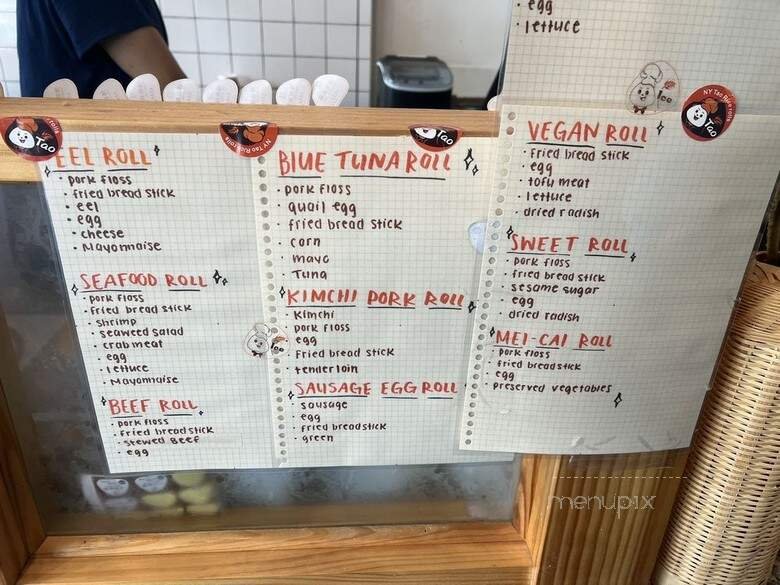 EEL ROLL
· pork floss
· fried bread stick
· eel
· egg
· cheese
· Mayonnaise
SEAFOOD ROLL
· pork floss
· fried bread stick
· shrimp
· seaweed salad
· crab meat
· egg
· lettuce
· Mayonnaise
BEEF ROLL
· pork floss
· fried bread stick
· stewed Beef
· egg
BLUE TUNA ROLL
· pork floss
· quail egg
· fried bread stick
· corn
· mayo
· Tuna
KIMCHI PORK ROLL
· Kimchi
· pork floss
· egg
· Fried bread stick
· tenderloin
SAUSAGE EGG ROLL
· sausage
· egg
· fried bread stick
· green
· egg
· lettuce
VEGAN ROLL
· fried bread stick
· egg
· tofu meat
· lettuce
· dried radish
SWEET ROLL
· pork floss
· fried bread stick
· sesame sugar
· egg
· dried radish
MEI-CAI ROLL
· pork floss
· fried bread stick
· egg
· preserved vegetables
NY Tao Rice rolls
Tao
Tao
NY Tao Rice rolls
Tao
menupix